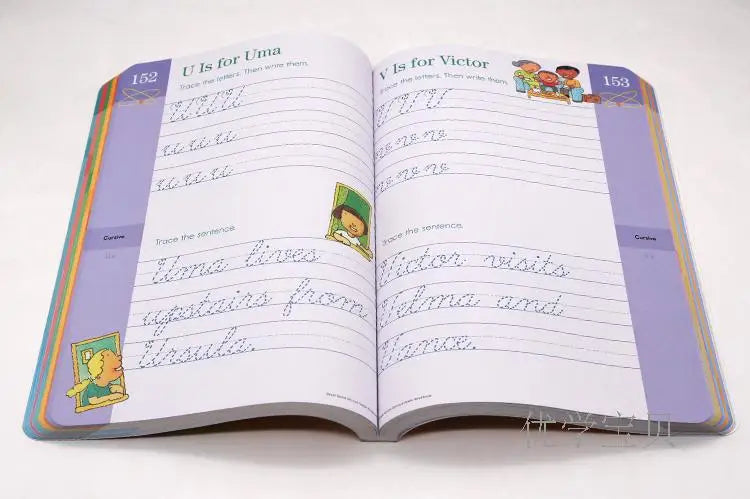 152
U Is for Uma
Trace the letters. Then write them.
U U U
u u u
u u u
Cursive
Trace the sentence.
Uma lives
upstairs from
Ursula.
V Is for Victor
153
Trace the letters. Then write them.
V V V
Cursive
Trace the sentence.
Victor visits
Velma and
Vance.
优学宝贝